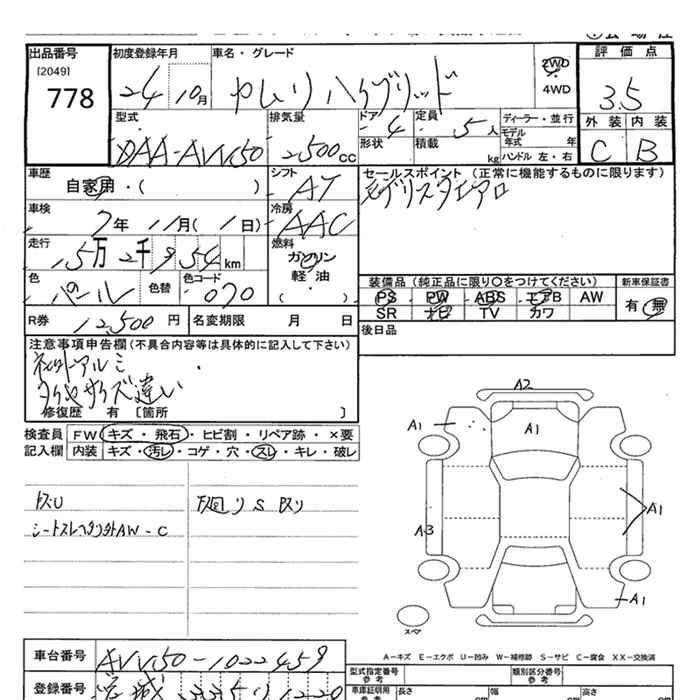 出品番号
[2049]
778
初度登録年月
24 10月
車名・グレード
カムリ ハイブリッド
2WD
4WD
評価点
3.5
外装 内装
C B
型式
DAA-AVV50
排気量
2500cc
ドア
4
形状
定員
5人
積載
kg
ディーラー・並行
モデル年式 年式
ハンドル 左・右
車歴
自家用・( )
シフト
AT
車検
7年 11月( 1日)
冷房
AAC
走行
15万 2千 9 54 km
燃料
ガソリン
軽油
( )
色
パール
色替
色コード
070
R券 12,500 円
名変期限 月 日
セールスポイント (正常に機能するものに限ります)
モデリスタエアロ
装備品 (純正品に限り○をつけてください)
PS PW ABS エアB AW
SR ナビ TV カワ
新車保証書
有 無
後日品
注意事項申告欄(不具合内容等は具体的に記入して下さい)
タイヤサイズ違い
修復歴 有 [箇所 ]
検査員
記入欄
FW キズ・飛石・ヒビ割・リペア跡・×要
内装 キズ・汚レ・コゲ・穴・スレ・キレ・破レ
A2
A1
A1
A3
A1
A1
スペア
A-キズ E-エクボ U-凹み W-補修跡 S-サビ C-腐食 XX-交換済
車台番号
AVV50-1022459
登録番号
型式指定番号
参考
類別区分番号
参考
車庫証明用
参考
長さ cm
幅 cm
高さ cm